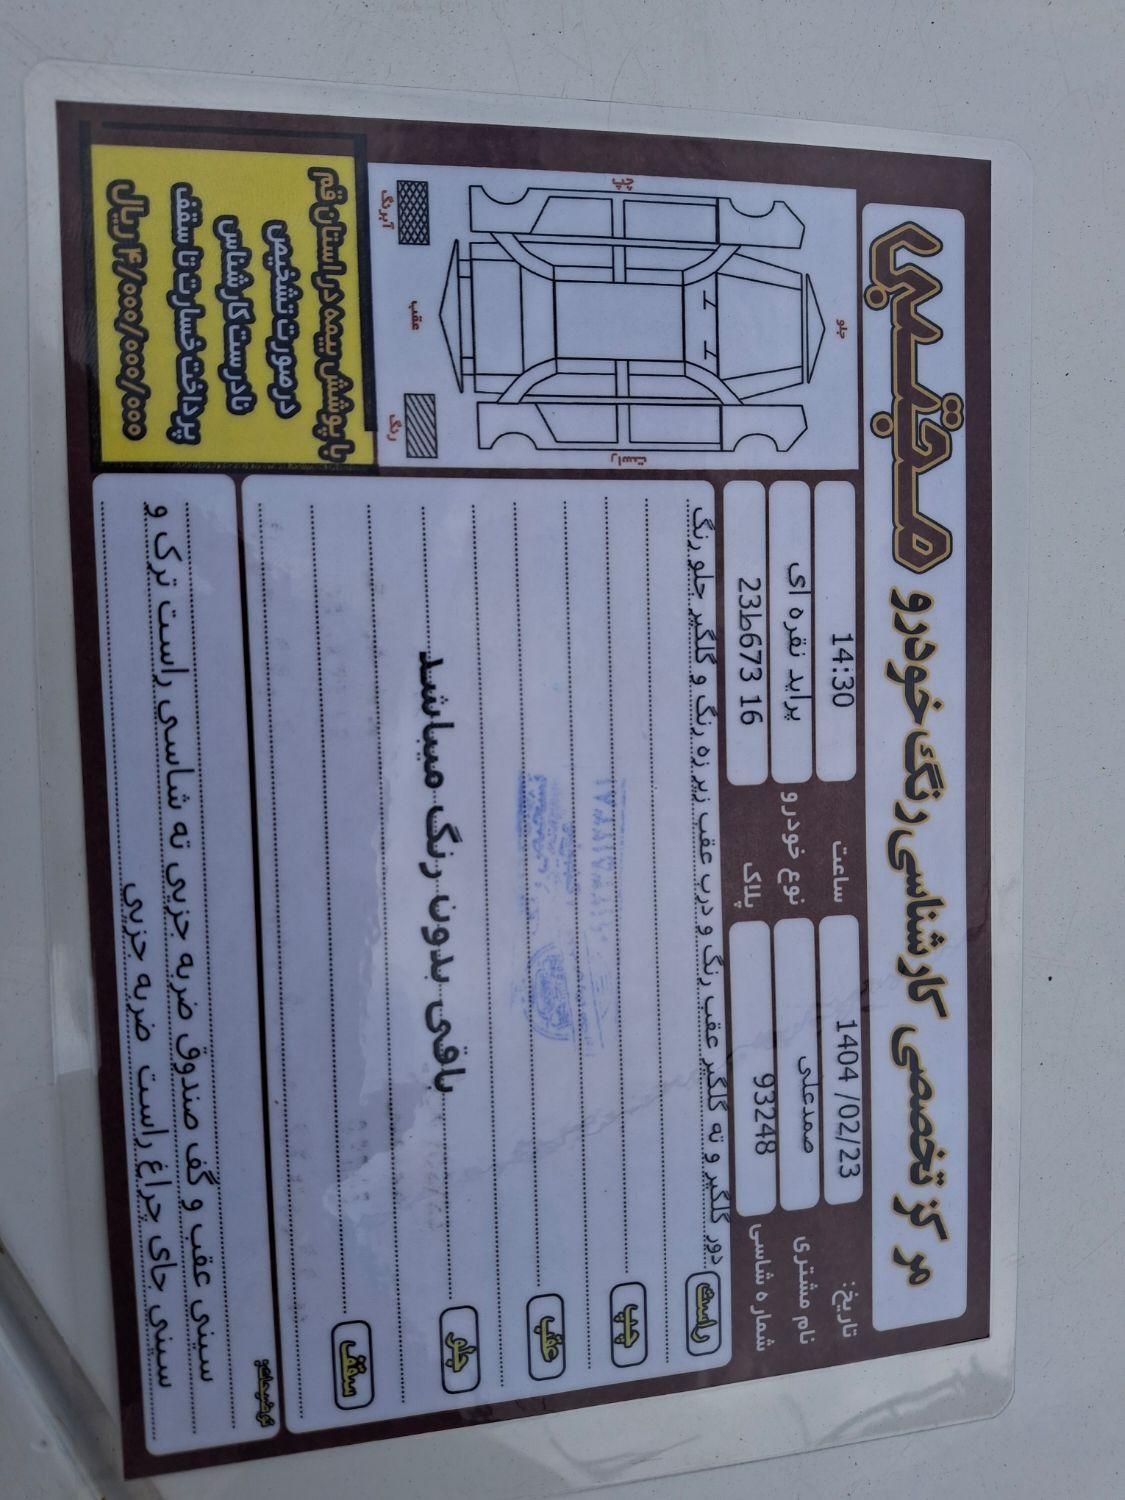 مرکز تخصصی کارشناسی رنگ خودرو مجتبی
تاریخ: 1404 /02/23
ساعت 14:30
نام مشتری صمدعلی
نوع خودرو پراید نقره ای
شماره شاسی 93248
پلاک 23ط673 16
جلو
چپ
راست
عقب
آبرنگ
رنگ
با پوشش بیمه در استان قم
در صورت تشخیص
نادرست کارشناس
پرداخت خسارت تا سقف
۴/۰۰۰/۰۰۰/۰۰۰ ریال
راست دور گلگیر و ته گلگیر عقب رنگ و درب عقب زیر زه رنگ و گلگیر جلو رنگ
چپ
عقب
جلو باقی بدون رنگ میباشد
سقف
توضیحات:
سینی عقب و گف صندوق ضربه جزیی ته شاسی راست ترک و
سینی جای چراغ راست ضربه جزیی